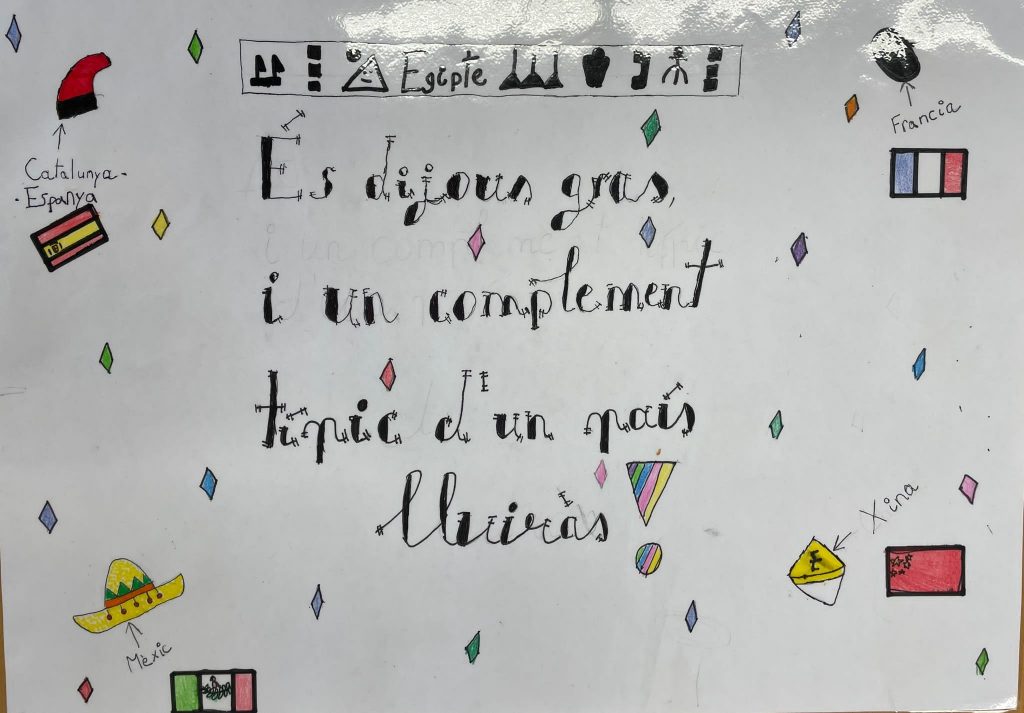 Egipte
Francia
Catalunya-
-Espanya
És dijous gras,
i un complement
típic d'un país
lluiràs!
Xina
Mèxic